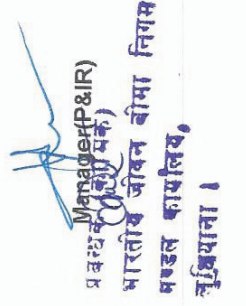 Manager(P&IR)
प्रबन्धक
भारतीय जीवन बीमा निगम
मण्डल कार्यालय,
लुधियाना ।